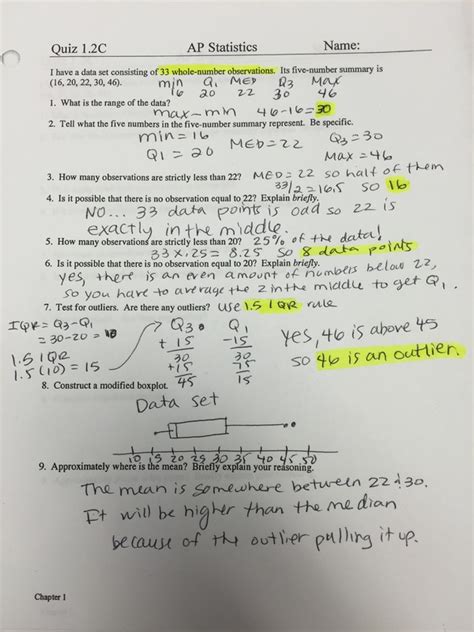 Quiz 1.2C AP Statistics Name:
I have a data set consisting of 33 whole-number observations. Its five-number summary is
(16, 20, 22, 30, 46). min Q1 MED Q3 Max
16 20 22 30 46
1. What is the range of the data?
max - min 46-16=30
2. Tell what the five numbers in the five-number summary represent. Be specific.
min = 16 MED=22 Q3=30
Q1 = 20 Max = 46
3. How many observations are strictly less than 22? MED = 22 so half of them
33/2=16.5 so 16
4. Is it possible that there is no observation equal to 22? Explain briefly.
NO... 33 data points is odd so 22 is
exactly in the middle.
5. How many observations are strictly less than 20? 25% of the data!
33 x .25 = 8.25 so 8 data points
6. Is it possible that there is no observation equal to 20? Explain briefly.
yes, there is an even amount of numbers below 22,
so you have to average the 2 in the middle to get Q1.
7. Test for outliers. Are there any outliers? use 1.5 IQR rule
IQR = Q3-Q1
= 30-20 = 10
1.5 IQR
1.5 (10) = 15
Q3 Q1
+ 15 -15
30 20
+15 15
45 15
yes, 46 is above 45
so 46 is an outlier.
8. Construct a modified boxplot.
Data set
10 15 20 25 30 35 40 45 50
9. Approximately where is the mean? Briefly explain your reasoning.
The mean is somewhere between 22 & 30.
It will be higher than the median
because of the outlier pulling it up.
Chapter 1